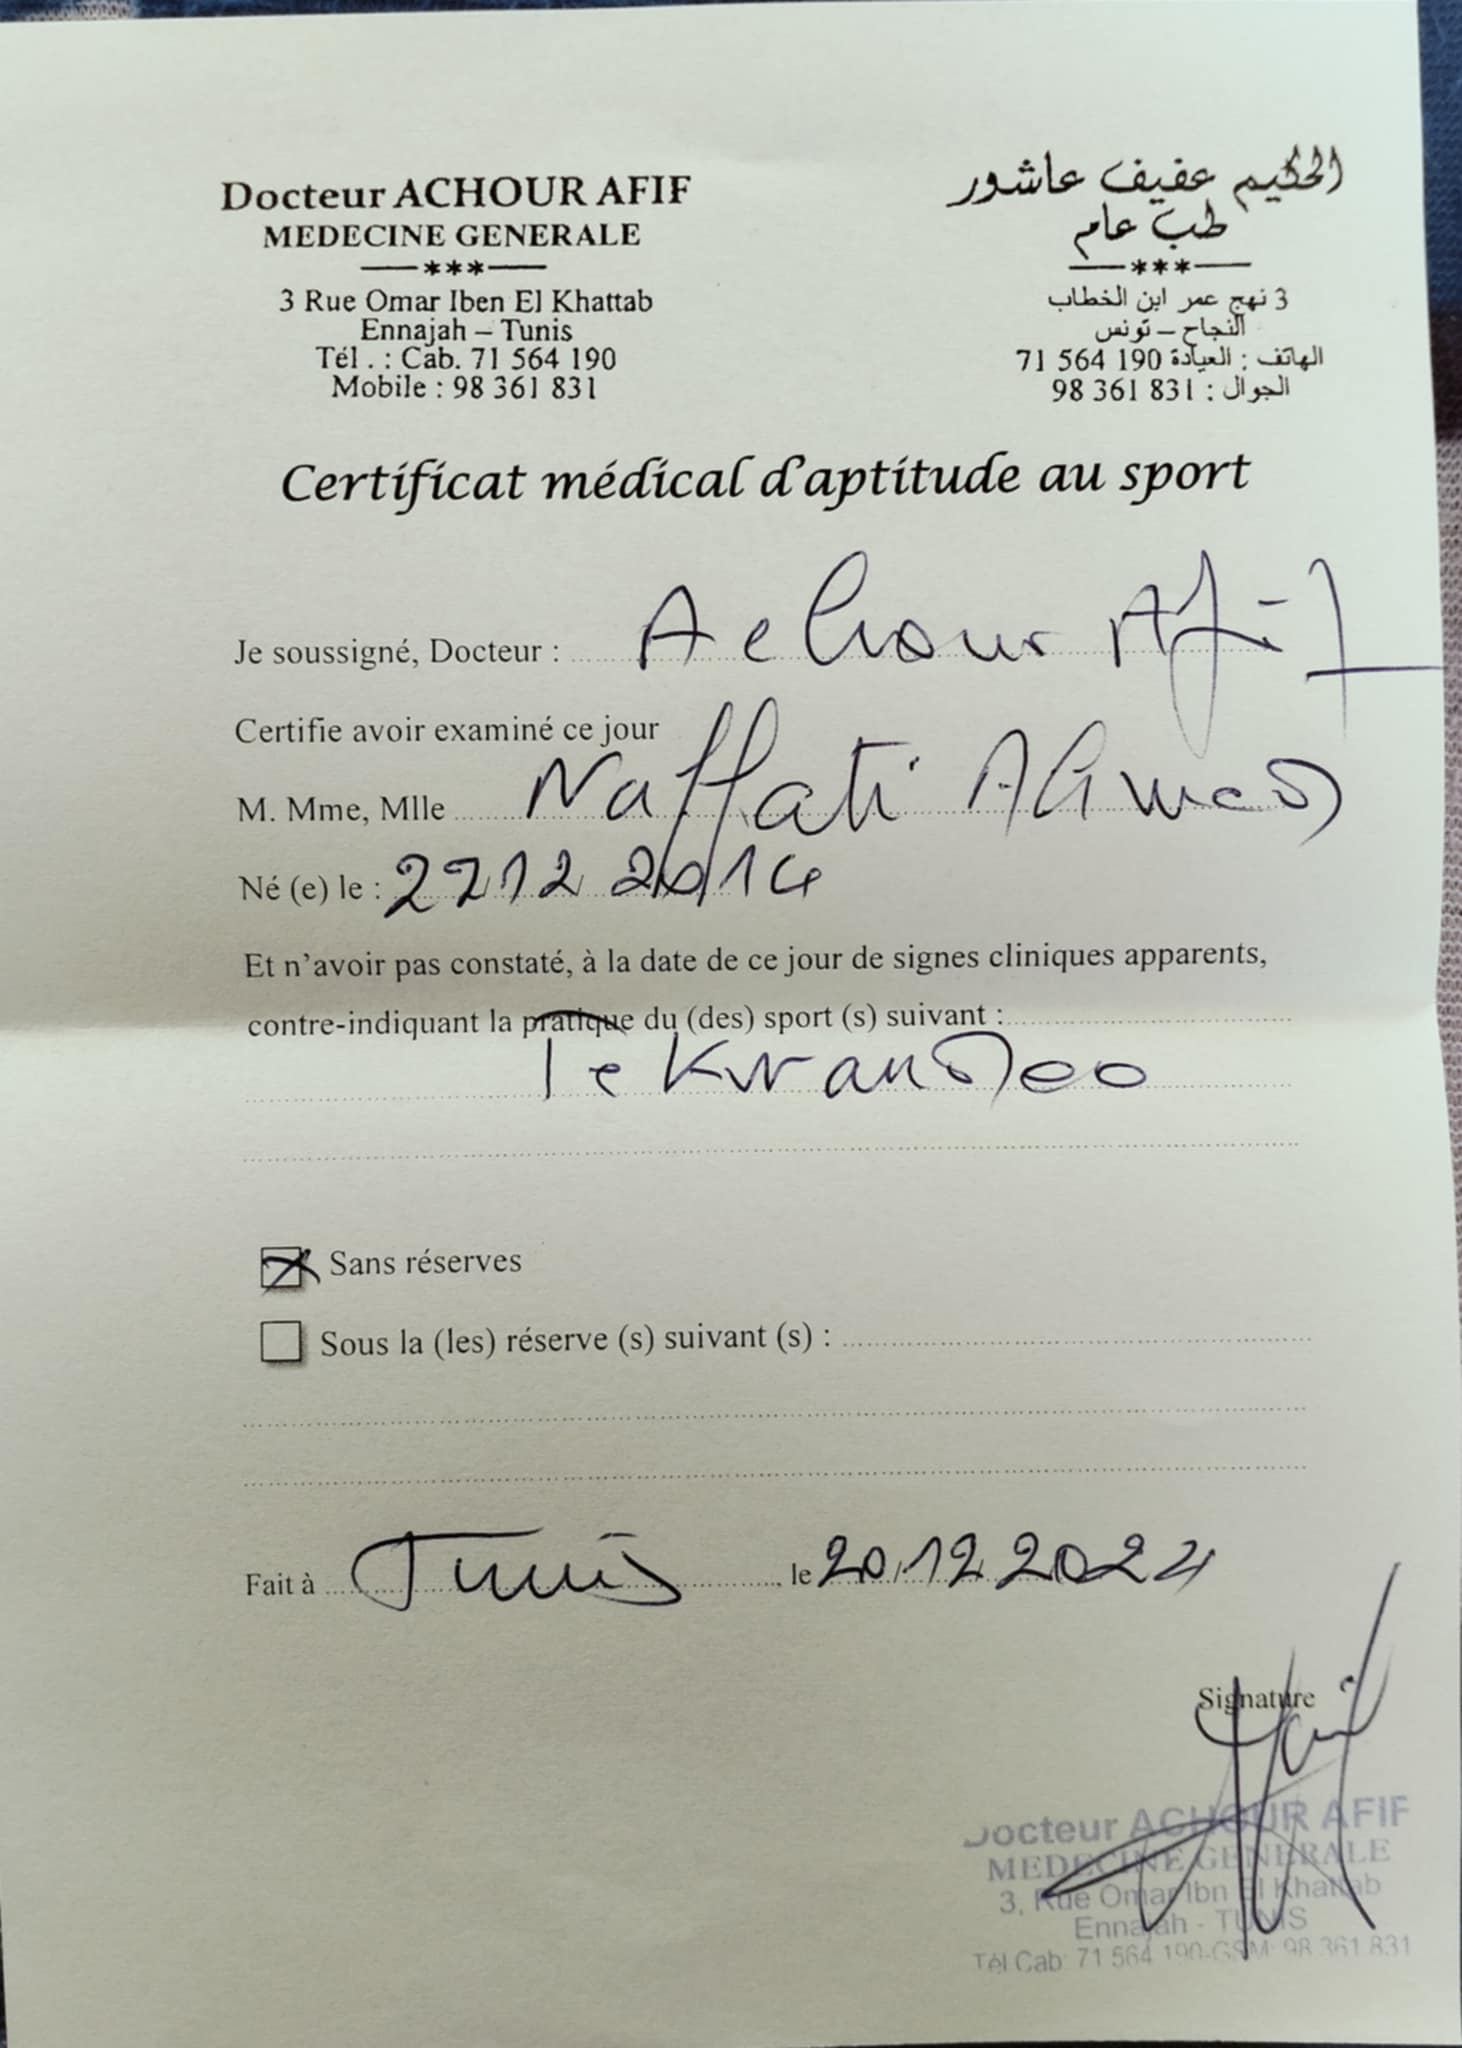 Docteur ACHOUR AFIF
MEDECINE GENERALE
***
3 Rue Omar Iben El Khattab
Ennajah – Tunis
Tél . : Cab. 71 564 190
Mobile : 98 361 831
الحكيم عفيف عاشور
طب عام
***
3 نهج عمر ابن الخطاب
النجاح – تونس
الهاتف : العيادة 190 564 71
الجوال : 831 361 98
Certificat médical d'aptitude au sport
Je soussigné, Docteur : Achour Afif
Certifie avoir examiné ce jour
M. Mme, Mlle Naffati Ahmed
Né (e) le : 22 12 2014
Et n'avoir pas constaté, à la date de ce jour de signes cliniques apparents,
contre-indiquant la pratique du (des) sport (s) suivant :
Tekwandoo
Sans réserves
Sous la (les) réserve (s) suivant (s) :
Fait à Tunis, le 20/12 2024
Signature
Docteur ACHOUR AFIF
MEDECINE GENERALE
3, Rue Omar Ibn El Khattab
Ennajah - TUNIS
Tél Cab: 71 564 190-GSM: 98 361 831